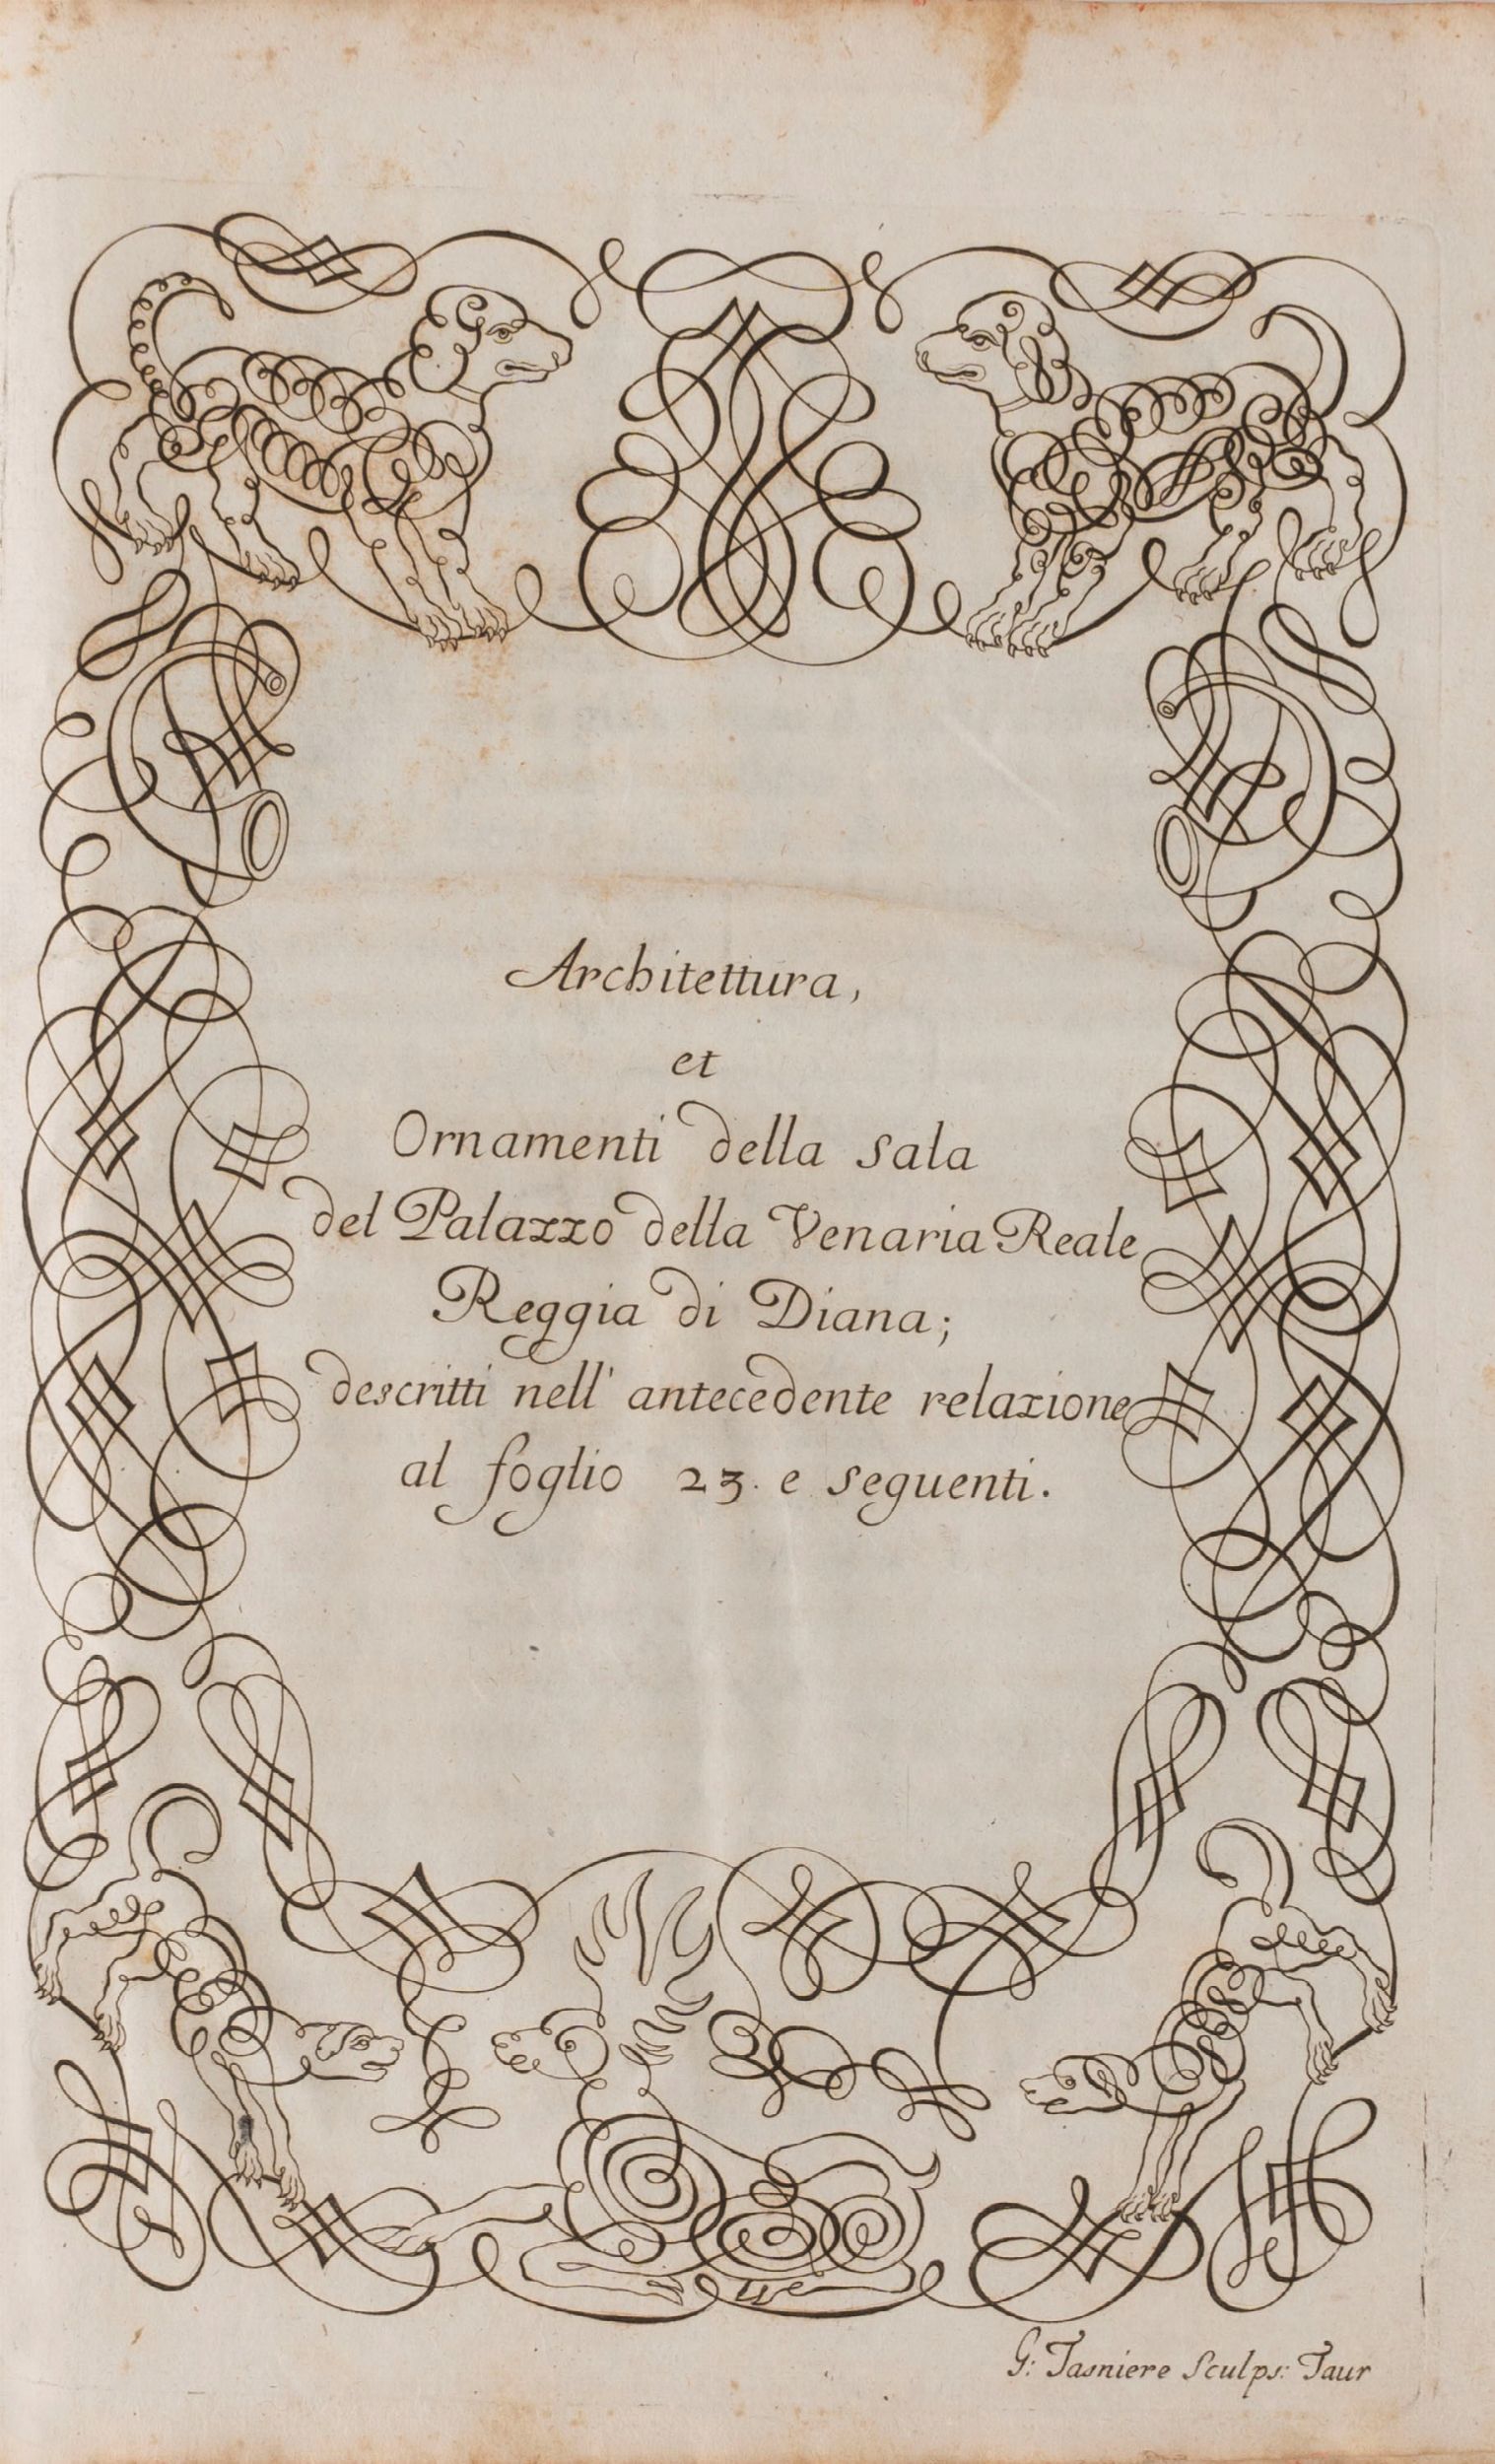 Architettura,
et
Ornamenti della sala
del Palazzo della Venaria Reale
Reggia di Diana;
descritti nell' antecedente relazione
al foglio 23. e seguenti.
G: Tasniere Sculps: Taur